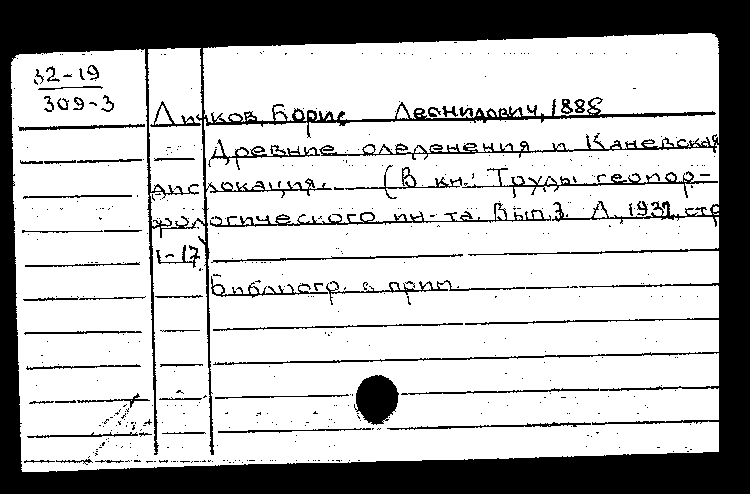 32-19
309-3
Личков, Борис Леонидович, 1888
Древние оледенения и Каневская
дислокация. (В кн.: Труды геомор-
фологического ин-та. Вып. 3. Л., 1932, стр
1-17)
Библиогр. в прим.